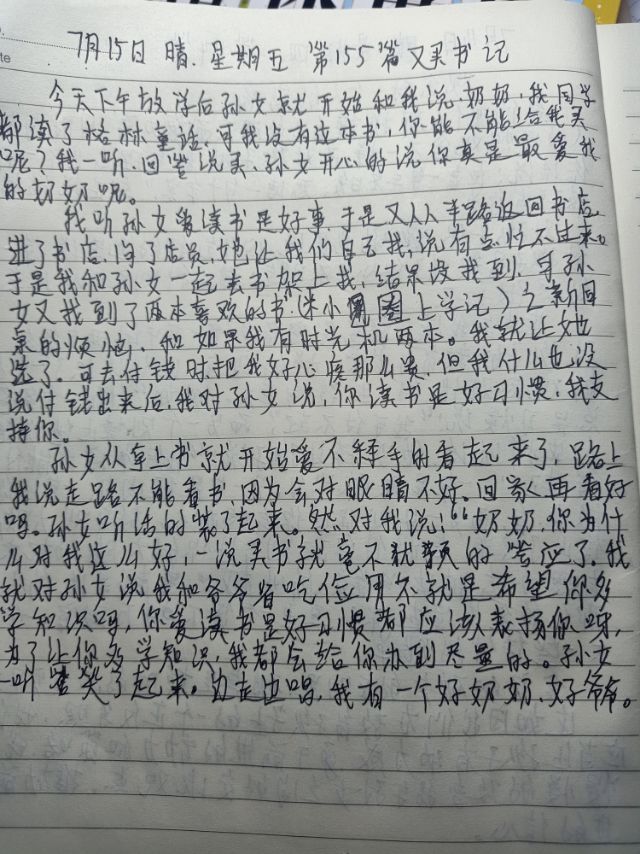 7月15日 晴.星期五 第155篇又买书记
今天下午放学后孙女就开始和我说.奶奶,我同学
都读了格林童话.可我没有这本书,你能不能给我买
呢?我一听.回答说买.孙女开心的说你真是最爱我
的奶奶呢。
我听孙女爱读书是好事.于是又从半路返回书店
进了书店.问了店员,她让我们自己找,说有点忙不过来。
于是我和孙女一起去书架上找,结果没找到.
女又找到了两本喜欢的书(米小圈圈上学记)之新同
桌的烦恼.和如果我有时光机两本。我就让她
选了.可去付钱时把我好心疼那么贵.但我什么也没
说付钱出来后.我对孙女说,你读书是好习惯.我支
持你。
孙女从拿上书就开始爱不释手的看起来了.路上
我说走路不能看书.因为会对眼睛不好.回家再看好
吗。孙女听话的装了起来。然对我说:“奶奶.你为什
么对我这么好,一说买书就毫不犹豫的答应了.我
就对孙女说我和爷爷省吃俭用不就是希望你多
学知识吗,你爱读书是好习惯都应该表扬你呀,
为了让你多学知识,我都会给你办到尽量的。孙女
一听 笑了起来。边走边唱,我有一个好奶奶.好爷爷。